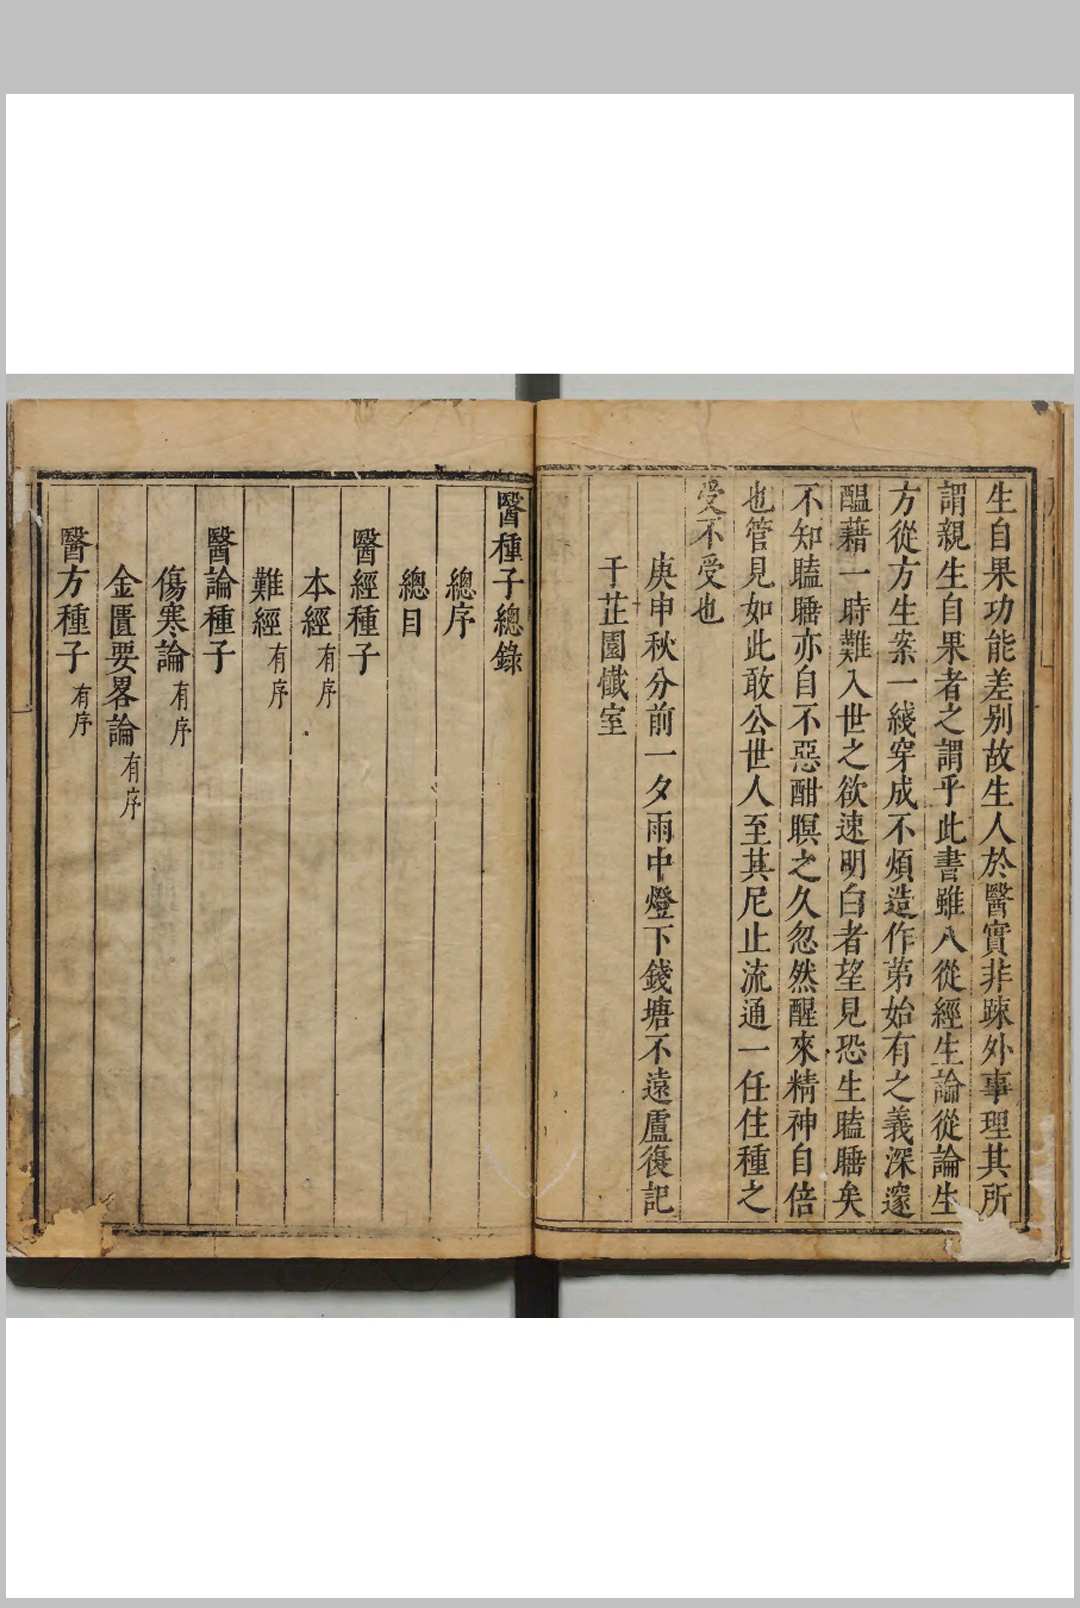 生自果功能差別故生人於醫實非踈外事理其所
謂親生自果者之謂乎此書雖八從經生論從論生
方從方生案一綫穿成不煩造作苐始有之義深邃
醞藉一時難入世之欲速明白者望見恐生瞌睡矣
不知瞌睡亦自不惡酣瞑之久忽然醒來精神自倍
也管見如此敢公世人至其尼止流通一任住種之
受不受也
庚申秋分前一夕雨中燈下錢塘不遠盧復記
于芷園懺室
醫種子總錄
總序
總目
醫經種子
本經有序
難經有序
醫論種子
傷寒論有序
金匱要畧論有序
醫方種子有序